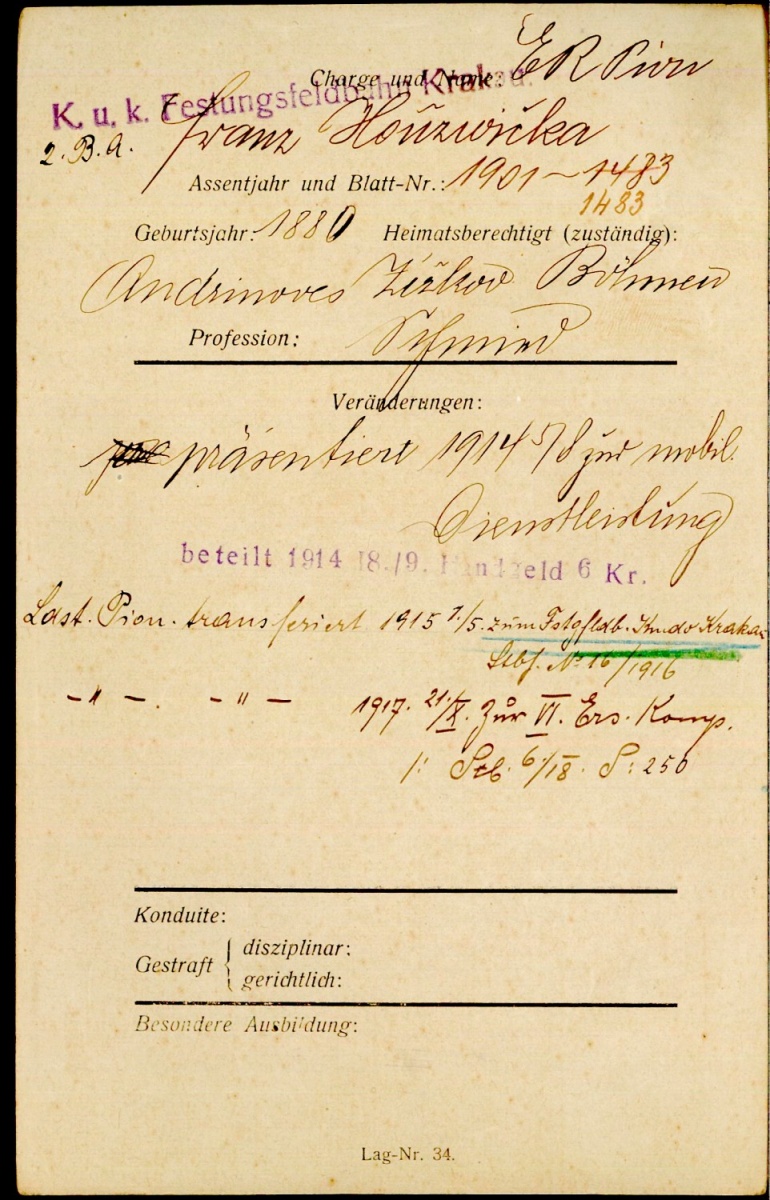 Charge und Name: ER Pion
K. u. k. Festungsfeldbahn Krakau.
Franz Houzwička
2. B. A.
Assentjahr und Blatt-Nr.: 1901 – 1483
1483
Geburtsjahr: 1880 Heimatsberechtigt (zuständig):
Žižkov Böhmen
Profession: Schmied
Veränderungen:
präsentiert 1914 5/8 zur mobil.
Dienstleistung
beteilt 1914 18./9. Handgeld 6 Kr.
Ldst. Pion. transferiert 1915 1/5. zum Fstgfldb. Kmdo Krakau
No 16/1916
– " – . – " – 1917. 21./X. zur VI. Ers. Komp.
Stb. 6./18. S: 250
Konduite:
Gestraft { disziplinar:
gerichtlich:
Besondere Ausbildung:
Lag-Nr. 34.